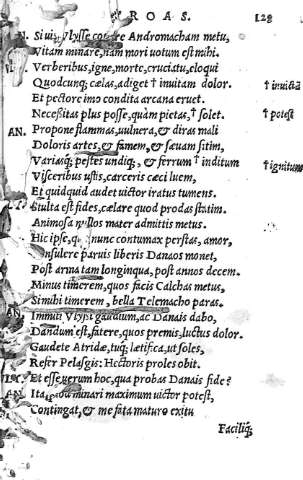 TROAS. 128
N. Si uis Vlysse cogere Andromacham metu,
Vitam minare, nam mori uotum est mihi.
VL. Verberibus, igne, morte, cruciatu, eloqui
Quodcunq; cælas, adiget † inuitam dolor. † inuictã
Et pectore imo condita arcana eruet.
Necessitas plus posse, quàm pietas, † solet. † potest
AN. Propone flammas, uulnera, & diras mali
Doloris artes, & famem, & sæuam sitim,
Variasq; pestes undiq;, & ferrum † inditum † ignitum
Visceribus ustis, carceris cæci luem,
Et quidquid audet uictor iratus tumens.
Stulta est fides, cælare quod prodas statim.
Animosa nullos mater admittis metus.
Hic ipse, quo nunc contumax perstas, amor,
Consulere paruis liberis Danaos monet,
Post arma tam longinqua, post annos decem.
Minus timerem, quos facis Calchas metus,
Si mihi timerem, bella Telemacho paras.
AN. Inuiti Vlyssi gaudium, ac Danais dabo,
Dandum est, fatere, quos premis, luctus dolor.
Gaudete Atridæ, tuq; lætifica, ut soles,
Refer Pelasgis: Hectoris proles obit.
VL. Et esse uerum hoc, qua probas Danais fide?
AN. Ita quod minari maximum uictor potest,
Contingat, & me fata maturo exitu
Faciliq;